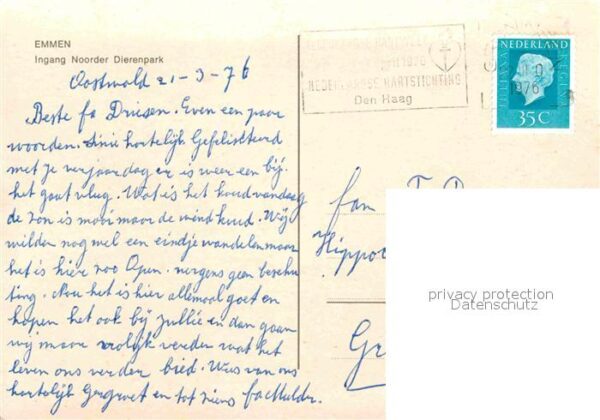 EMMEN
Ingang Noorder Dierenpark
Oostwold 21-3-76
Beste fa Driesen. Even een paar
woorden. hartelijk Gefeliciteerd
met je verjaardag er is weer een bij.
het gaat vlug. Wat is het koud vandaag
de zon is mooi maar de wind koud. Wij
wilden nog wel een eindje wandelen maar
het is hier zoo Open. nergens geen beschu
tting. Nou het is hier allemaal goet en
hopen het ook bij jullie en dan gaan
wij maar vrolijk verder wat het
leven ons verder bied. Wees van ons
hartelijk Gegroet en tot ziens fa Mulder.
NEDERLANDSE HARTSTICHTING
Den Haag
NEDERLAND
1976
35 C
fam
Hippo
Gr
privacy protection
Datenschutz